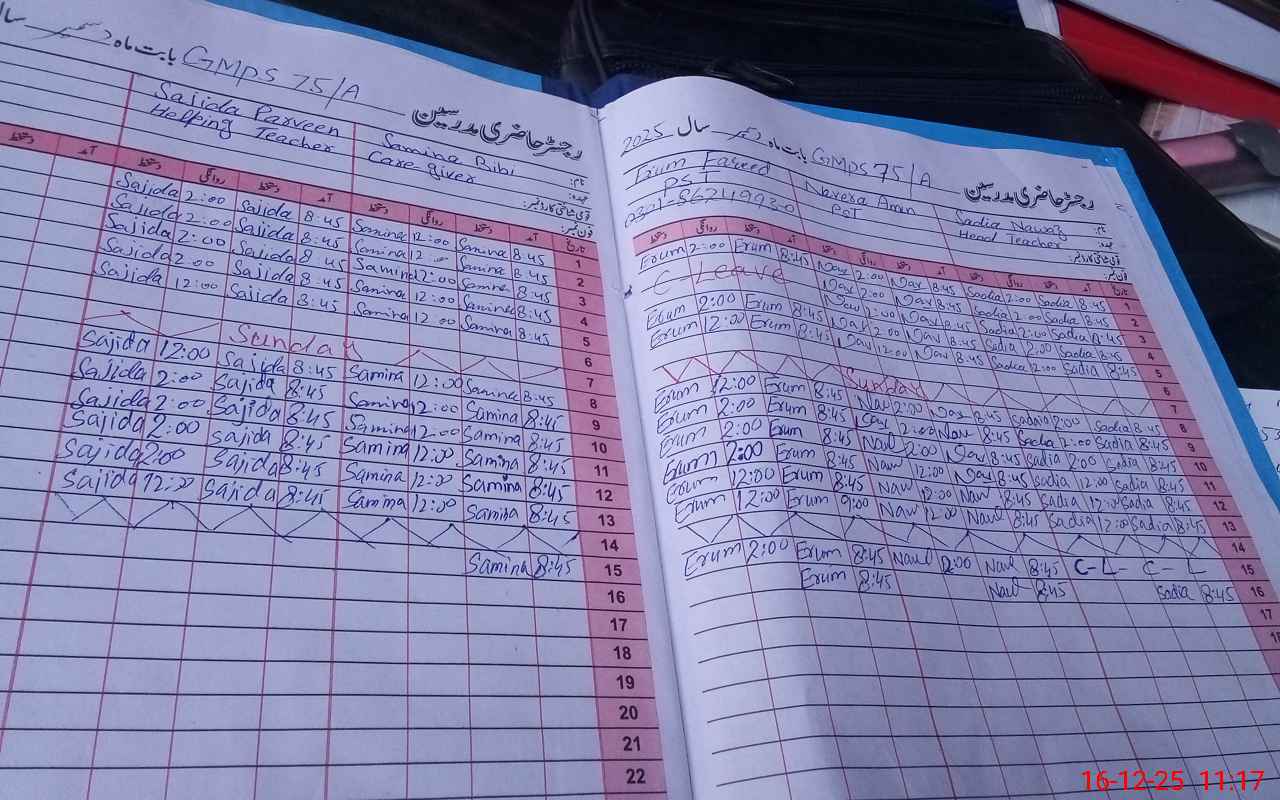 بابت ماہ دسمبر سال
GMPS 75/A
رجسٹر حاضری مدرسین
Sajida Parveen
Helping Teacher
Samina Bibi
Care giver
نام:
عہدہ:
قومی شناختی کارڈ نمبر:
فون نمبر:
دستخط آمد دستخط روانگی دستخط آمد دستخط روانگی دستخط آمد تاریخ
Sajida 2:00 Sajida 8:45 Samina 12:00 Samina 8:45 1
Sajida 2:00 Sajida 8:45 Samina 12:00 Samina 8:45 2
Sajida 2:00 Sajida 8:45 Samina 12:00 Samina 8:45 3
Sajida 2:00 Sajida 8:45 Samina 12:00 Samina 8:45 4
Sajida 12:00 Sajida 8:45 Samina 12:00 Samina 8:45 5
Sunday 6
Sajida 12:00 Sajida 8:45 Samina 12:00 Samina 8:45 7
Sajida 2:00 Sajida 8:45 Samina 12:00 Samina 8:45 8
Sajida 2:00 Sajida 8:45 Samina 12:00 Samina 8:45 9
Sajida 2:00 Sajida 8:45 Samina 12:00 Samina 8:45 10
Sajida 2:00 Sajida 8:45 Samina 12:00 Samina 8:45 11
Sajida 12:00 Sajida 8:45 Samina 12:00 Samina 8:45 12
13
14
Samina 8:45 15
16
17
18
19
20
21
22
رجسٹر حاضری مدرسین
GMPS 75/A بابت ماہ دسمبر سال 2025
Erum Fareed
PST
Navera Amin
PST
Sadia Nawaz
Head Teacher
نام:
عہدہ:
قومی شناختی کارڈ نمبر:
فون نمبر:
دستخط روانگی دستخط آمد دستخط روانگی دستخط آمد دستخط روانگی دستخط آمد تاریخ
Erum 2:00 Erum 8:45 Nav 2:00 Nav 8:45 Sadia 2:00 Sadia 8:45 1
C Leave Nav 2:00 Nav 8:45 Sadia 2:00 Sadia 8:45 2
Erum 2:00 Erum 8:45 Nav 2:00 Nav 8:45 Sadia 2:00 Sadia 8:45 3
Erum 12:00 Erum 8:45 Nav 12:00 Nav 8:45 Sadia 12:00 Sadia 8:45 5
Sunday 6
7
Erum 12:00 Erum 8:45 Nav 2:00 Nav 8:45 Sadia 2:00 Sadia 8:45 8
Erum 2:00 Erum 8:45 Nav 2:00 Nav 8:45 Sadia 2:00 Sadia 8:45 9
Erum 2:00 Erum 8:45 Nav 2:00 Nav 8:45 Sadia 2:00 Sadia 8:45 10
Erum 2:00 Erum 8:45 Nav 12:00 Nav 8:45 Sadia 12:00 Sadia 8:45 11
Erum 12:00 Erum 8:45 Nav 12:00 Nav 8:45 Sadia 12:00 Sadia 8:45 12
Erum 12:00 Erum 9:00 Nav 12:00 Nav 8:45 Sadia 12:00 Sadia 8:45 13
14
Erum 2:00 Erum 8:45 Nav 2:00 Nav 8:45 C-L- C-L 15
Erum 8:45 Nav 8:45 Sadia 8:45 16
17
16-12-25 11.17